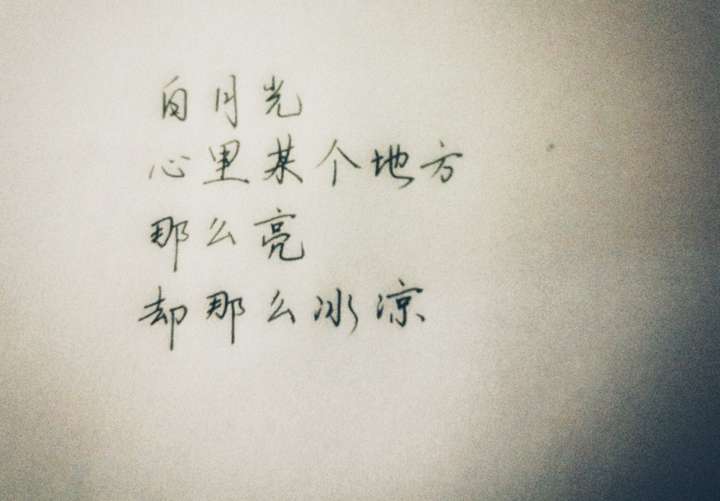 白月光
心里某个地方
那么亮
却那么冰凉